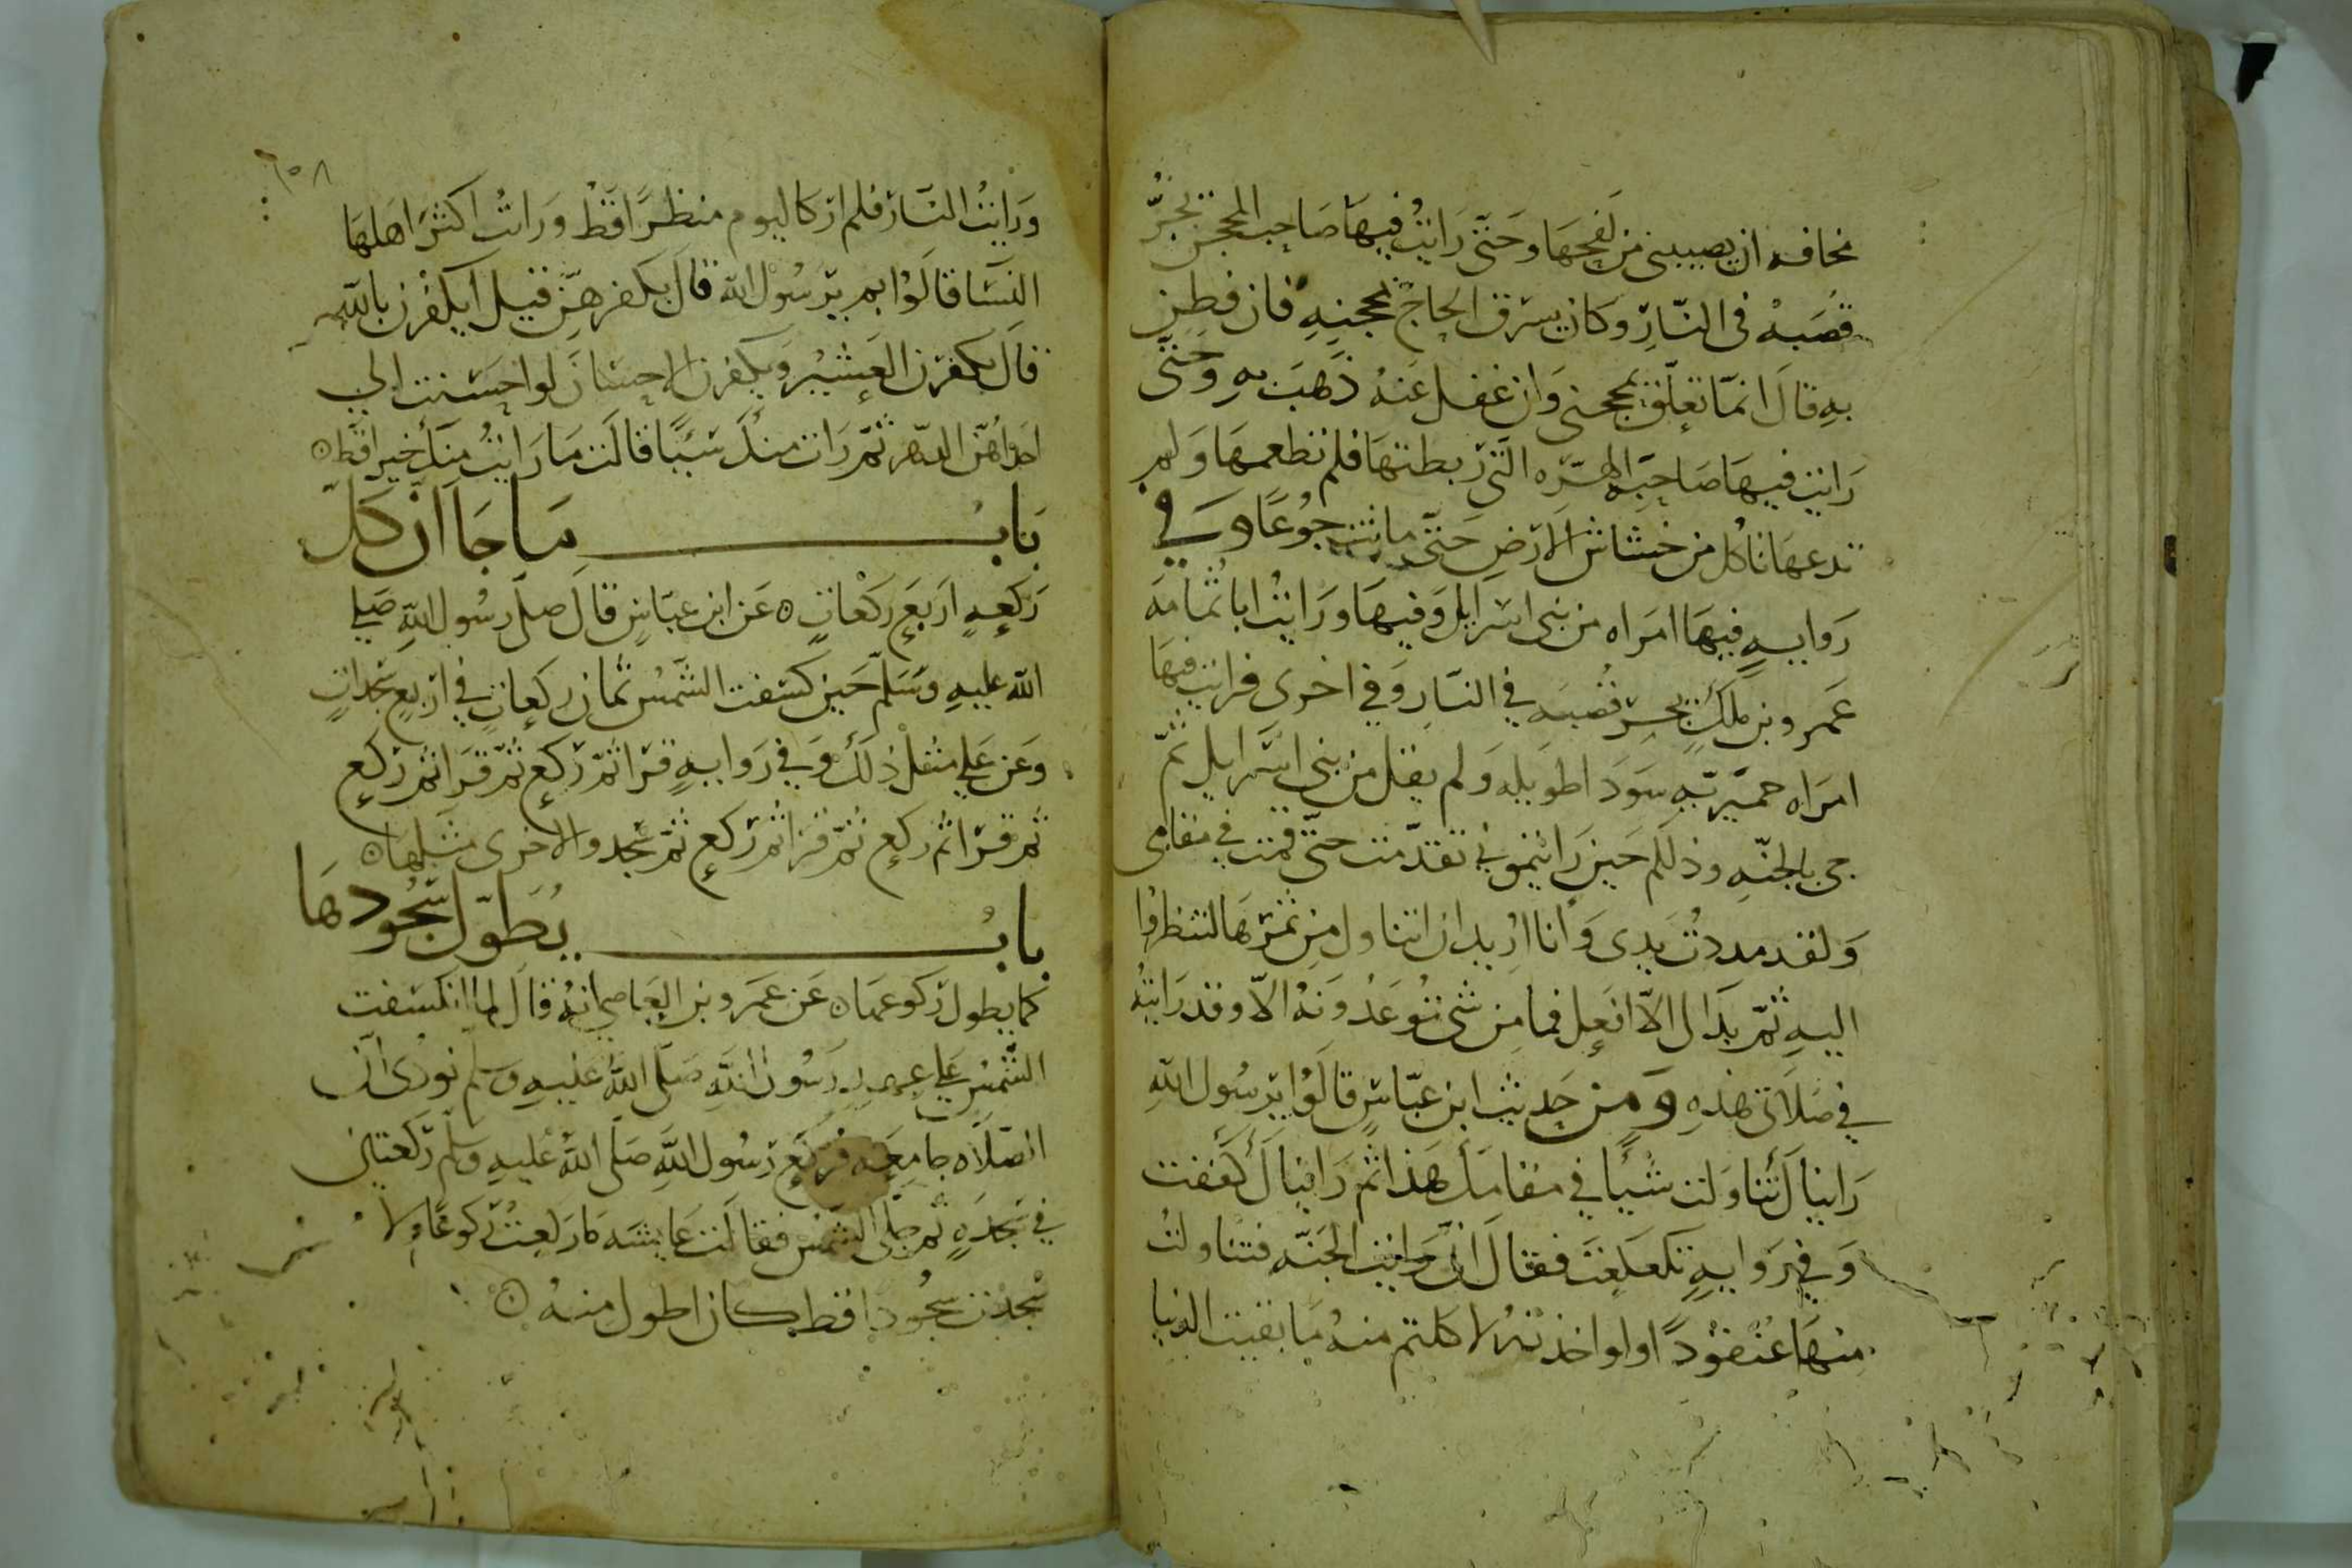 مخافه ان يصيبنى من لفحها وحتى رايت فيها صاحب المحجن يجر
قصبه فى النار وكان يسرق الحاج بمحجنه فان فطن
به قال انما تعلق بمحجنى وان غفل عنه ذهب به وحتى
رايت فيها صاحبه الهره التى ربطتها فلم تطعمها ولم
تدعها تاكل من خشاش الارض حتى ماتت جوعا وفي
روايه فيها امراه من بنى اسرايل وفيها ورايت ابا ثمامه
عمرو بن ملك يجر قصبه في النار وفي اخرى فرايت فيها
امراه حميريه سودا طويله ولم يقل من بنى اسرايل ثم
جى بالجنه وذلكم حين رايتمونى تقدمت حتى قمت في مقامى
ولقد مددت يدى وانا اريد ان اتناول من ثمرها لتنظروا
اليه ثم بدا لى الا افعل فما من شى توعدونه الا وقد رايته
في صلاتى هذه ومن حديث ابن عباس قالوا يرسول الله
رايناك تناولت شيئا في مقامك هذا ثم رايناك كففت
وفي روايه تكعكعت فقال انى رايت الجنه فتناولت
منها عنقودا ولو اخذته لاكلتم منه ما بقيت الدنيا
٦٥٨
ورايت النار فلم ار كاليوم منظرا قط ورايت اكثر اهلها
النسا قالوا بم يرسول الله قال بكفرهن قيل ايكفرن بالله
قال يكفرن العشير ويكفرن الاحسان لو احسنت الي
احداهن الدهر ثم رات منك شيئا قالت ما رايت منك خيرا قط
باب ما جا ان كل
ركعه اربع ركعات عن ابن عباس قال صلى رسول الله صلى
الله عليه وسلم حين كسفت الشمس ثمان ركعات في اربع سجدات
وعن علي مثل ذلك وفي روايه قرا ثم ركع ثم قرا ثم ركع
ثم قرا ثم ركع ثم قرا ثم ركع ثم سجد والاخرى مثلها
باب يطول سجودها
كما يطول ركوعها عن عمرو بن العاصى انه قال لما انكسفت
الشمس على عهد رسول الله صلى الله عليه وسلم نودى ان
الصلاه جامعه فركع رسول الله صلى الله عليه وسلم ركعتان
في سجده ثم جلى الشمس فقالت عايشه ما ركعت ركوعا ولا
سجدت سجودا قط كان اطول منه